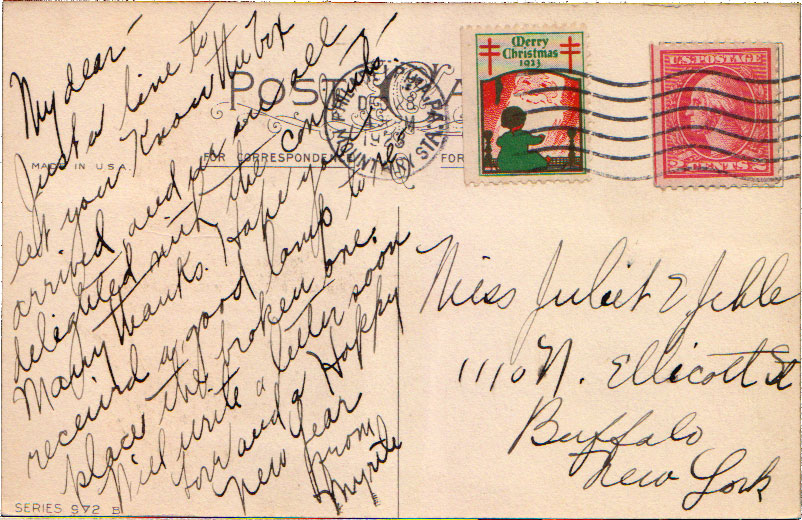 My dear-
Just a line to
let you know the box
arrived and we are all
delighted with the contents-
Many thanks. Hope you
received a good lamp to re-
place the broken one.
Will write a letter soon
and a Happy
New Year
from
Myrtle
POST CARD
MADE IN U.S.A.
FOR CORRESPONDENCE
FOR
PHILADELPHIA, PA.
DEC
28
Merry
Christmas
1923
U.S. POSTAGE
2 CENTS 2
Miss Juliet E Jehle
1110 N. Ellicott St
Buffalo
New York
SERIES 972 B